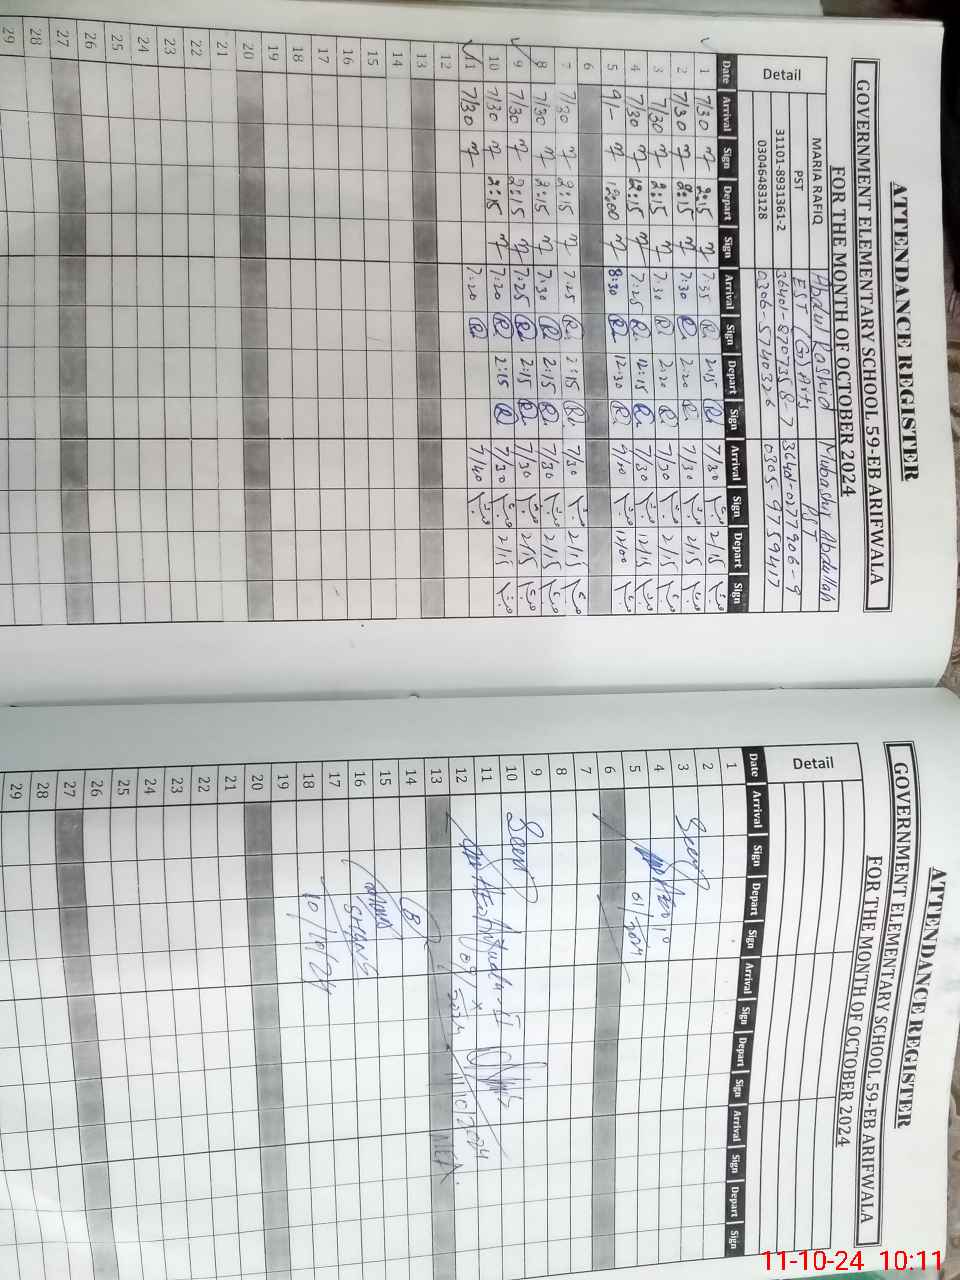 ATTENDANCE REGISTER
GOVERNMENT ELEMENTARY SCHOOL 59-EB ARIFWALA
FOR THE MONTH OF OCTOBER 2024
Detail
MARIA RAFIQ Abdul Rashid Mubashir Abdullah
PST EST (G) Arts PST
31101-8931361-2 36401-8707358-7
03046483128 0306-5740326 0305-9759417
Date Arrival Sign Depart Sign Arrival Sign Depart Sign Arrival Sign Depart Sign
1 7/30 2:15 7:35 2:15 7/30 2/15
2 7/30 2:15 7:30 2:20 7/30 2/15
3 7/30 2:15 7:30 2:20 7/30 2/15
4 7/30 12:15 7:25 12:15 7/30 12/15
5 9/- 12:00 8:30 12:30 9/00 12/00
6
7 7/30 2:15 7:25 2:15 7/30 2/15
8 7/30 2:15 7:30 2:15 7/30 2/15
9 7/30 2:15 7:25 2:15 7/30 2/15
10 7/30 2:15 7:20 2:15 7/30 2/15
11 7/30 7:20 7/40
12
13
14
15
16
17
18
19
20
21
22
23
24
25
26
27
28
29
ATTENDANCE REGISTER
GOVERNMENT ELEMENTARY SCHOOL 59-EB ARIFWALA
FOR THE MONTH OF OCTOBER 2024
Detail
Date Arrival Sign Depart Sign Arrival Sign Depart Sign Arrival Sign Depart Sign
1
2
3 Seen
4
5 01/2024
6
7
8
9
10 Seen
11
12 11/10/2024
13 MEA
14
15
16
17
18 10/10/24
19
20
21
22
23
24
25
26
27
28
29
11-10-24 10:11